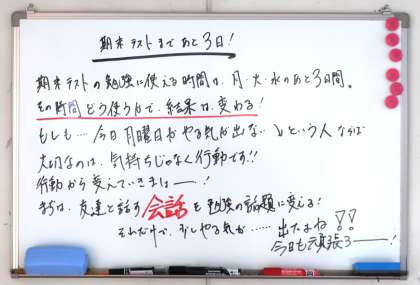 期末テストまであと3日!
期末テストの勉強に使える時間は、月・火・水のあと3日間。
その時間どう使うかで、結果は、変わる!
もしも…今日月曜日がやる気が出ない…という人ならば
大切なのは、気持ちじゃなく行動です!!
行動から変えていきましょー!
まずは、友達と話す会話を勉強の話題に変える!
それだけで、少しやる気が……出たよね!!
今日も頑張ろー!